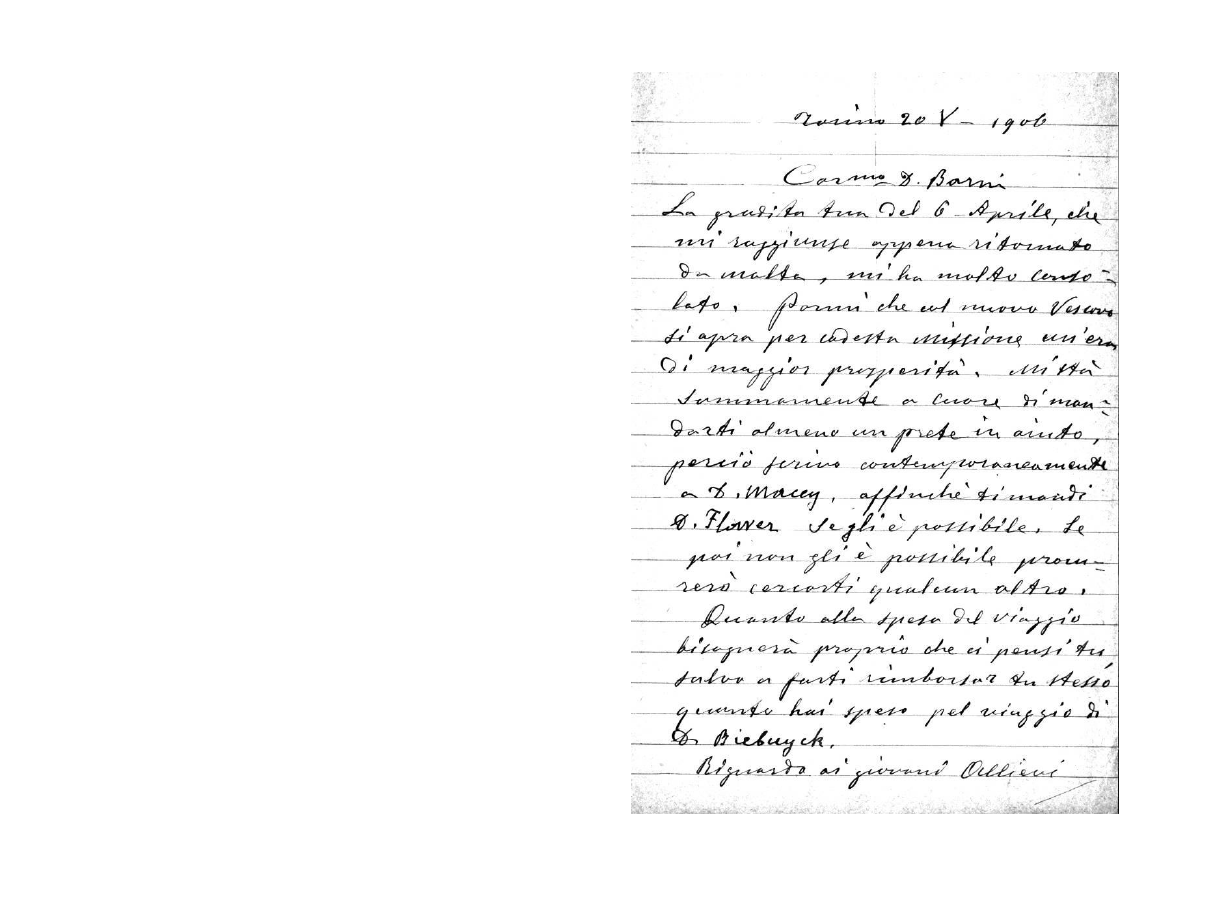 Torino 20 V - 1906
Carmo D. Barni
La gradita tua del 6 Aprile, che
mi raggiunse appena ritornato
da malta, mi ha molto conso=
lato. Parmi che col nuovo Vescovo
si apra per codesta missione un'era
di maggior prosperità. Mi stà
sommamente a cuore di man=
darti almeno un prete in aiuto,
perciò scrivo contemporaneamente
a D. Macey, affinchè ti mandi
D. Flower se gli è possibile. Se
poi non gli è possibile procu=
rerò cercarti qualcun altro.
Quanto alla spesa del viaggio
bisognerà proprio che ci pensi tu,
salvo a farti rimborsar tu stesso
quanto hai speso pel viaggio di
D. Biebuyck.
Riguardo ai giovani Allievi